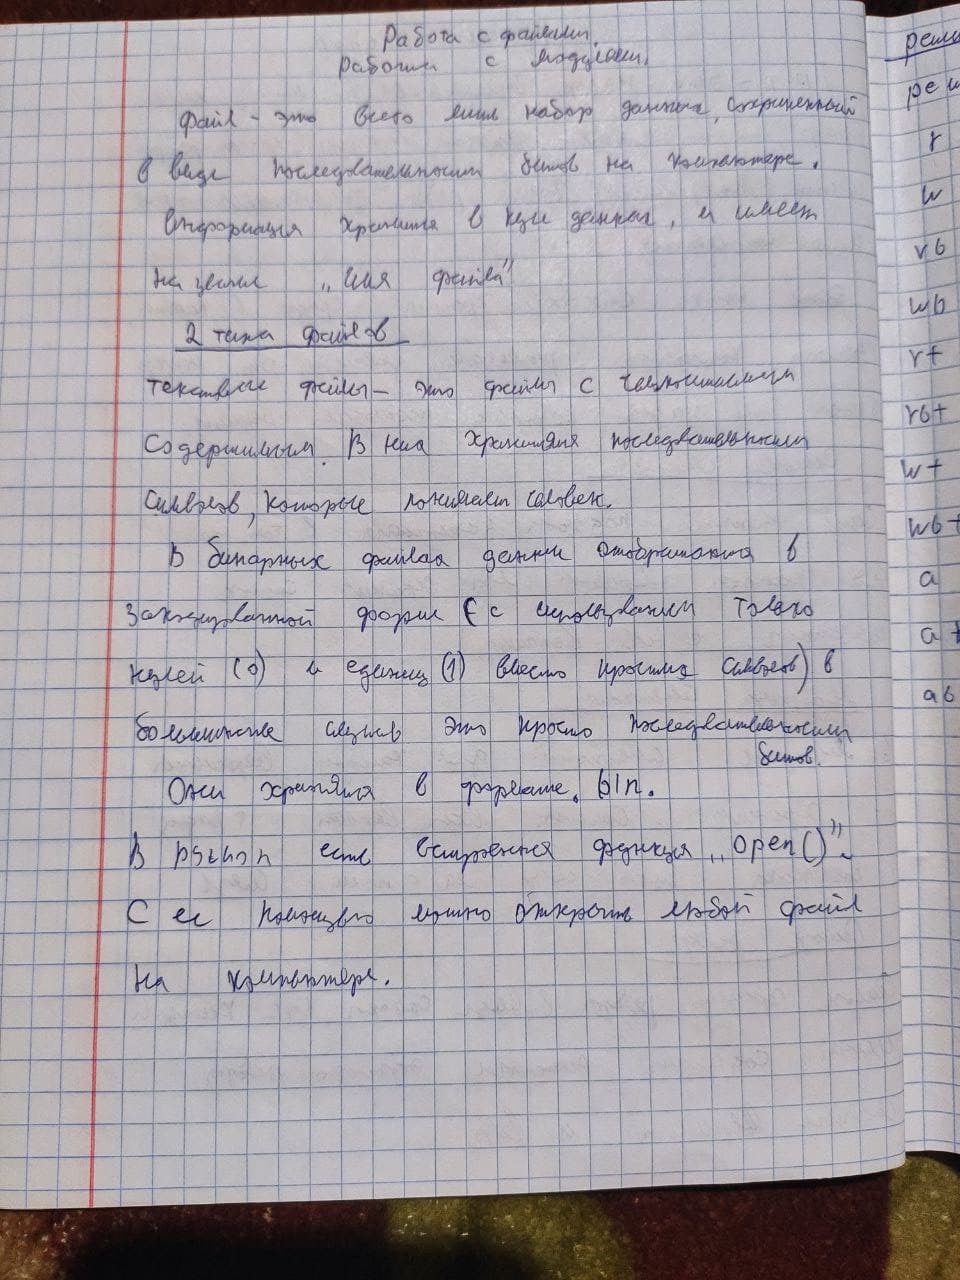 Работа с файлами.
Работа с модулями.
Файл - это всего лишь набор данных, сохраненный
в виде последовательности битов на компьютере.
Информация хранится в куче данных, и имеет
название „Имя файла"
2 типа файлов
Текстовые файлы - это файлы с читаемым
содержимым. В них хранятся последовательности
символов, которые понимает человек.
В бинарных файлах данные отображаются в
закодированной форме (с использованием только
нулей (0) и единиц (1) вместо простых символов) в
большинстве случаев это просто последовательности
битов.
Они хранятся в формате .bin.
В python есть встроенная функция „open()".
С ее помощью можно открыть любой файл
на компьютере.
r
w
rb
wb
r+
rb+
w+
wb+
a
a+
ab